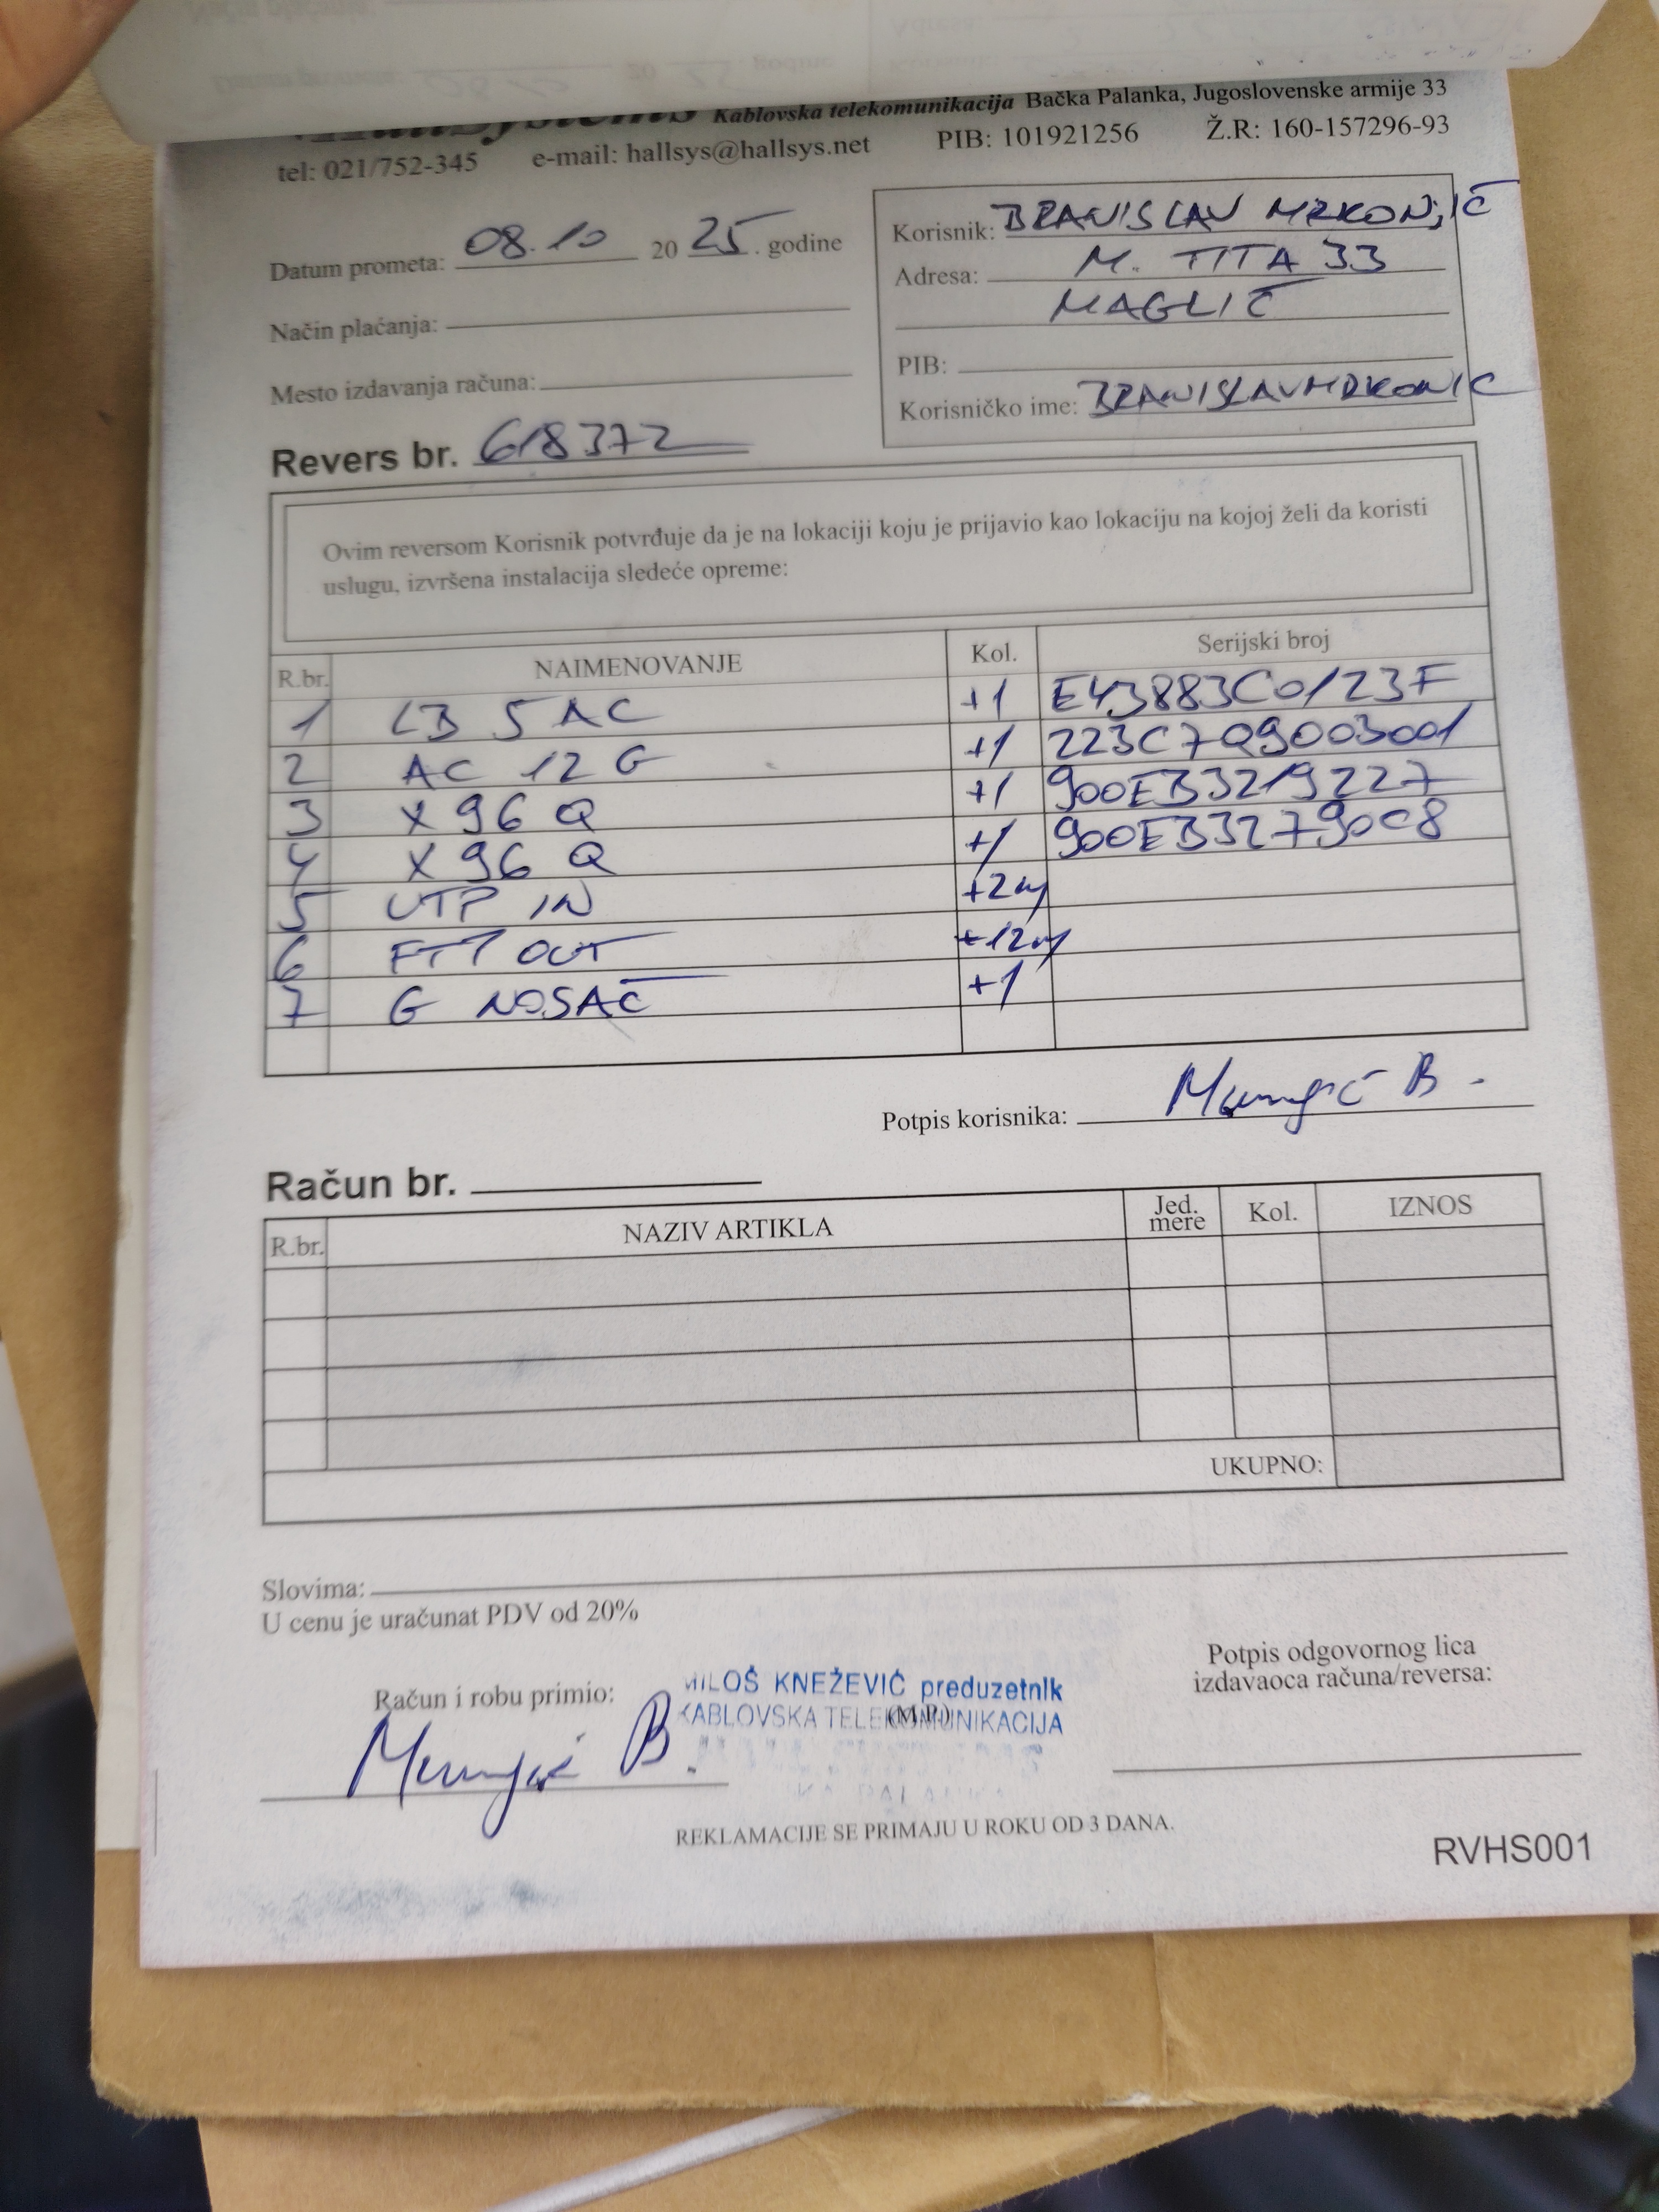 HallSystems Kablovska telekomunikacija Bačka Palanka, Jugoslovenske armije 33
tel: 021/752-345 e-mail: hallsys@hallsys.net PIB: 101921256 Ž.R: 160-157296-93
Datum prometa: 08.10 2025. godine
Način plaćanja:
Mesto izdavanja računa:
Korisnik: BRANISLAV MRKONjIĆ
Adresa: M. TITA 33
MAGLIĆ
PIB:
Korisničko ime: BRANISLAVMRKONIC
Revers br. 618372
Ovim reversom Korisnik potvrđuje da je na lokaciji koju je prijavio kao lokaciju na kojoj želi da koristi
uslugu, izvršena instalacija sledeće opreme:
R.br. NAIMENOVANJE Kol. Serijski broj
1 LB 5 AC +1 E43883C0123F
2 AC 12 G +1 223C7Q9003001
3 X 96 Q +1 900EB3219227
4 X 96 Q +1 900EB32790C8
5 UTP IN +2m
6 FTP OUT +12m
7 G NOSAČ +1
Potpis korisnika: B.
Račun br.
R.br. NAZIV ARTIKLA Jed. mere Kol. IZNOS
UKUPNO:
Slovima:
U cenu je uračunat PDV od 20%
Račun i robu primio:
B.
MILOŠ KNEŽEVIĆ preduzetnik
KABLOVSKA TELEKOMUNIKACIJA
(M.P.)
Potpis odgovornog lica
izdavaoca računa/reversa:
REKLAMACIJE SE PRIMAJU U ROKU OD 3 DANA.
RVHS001